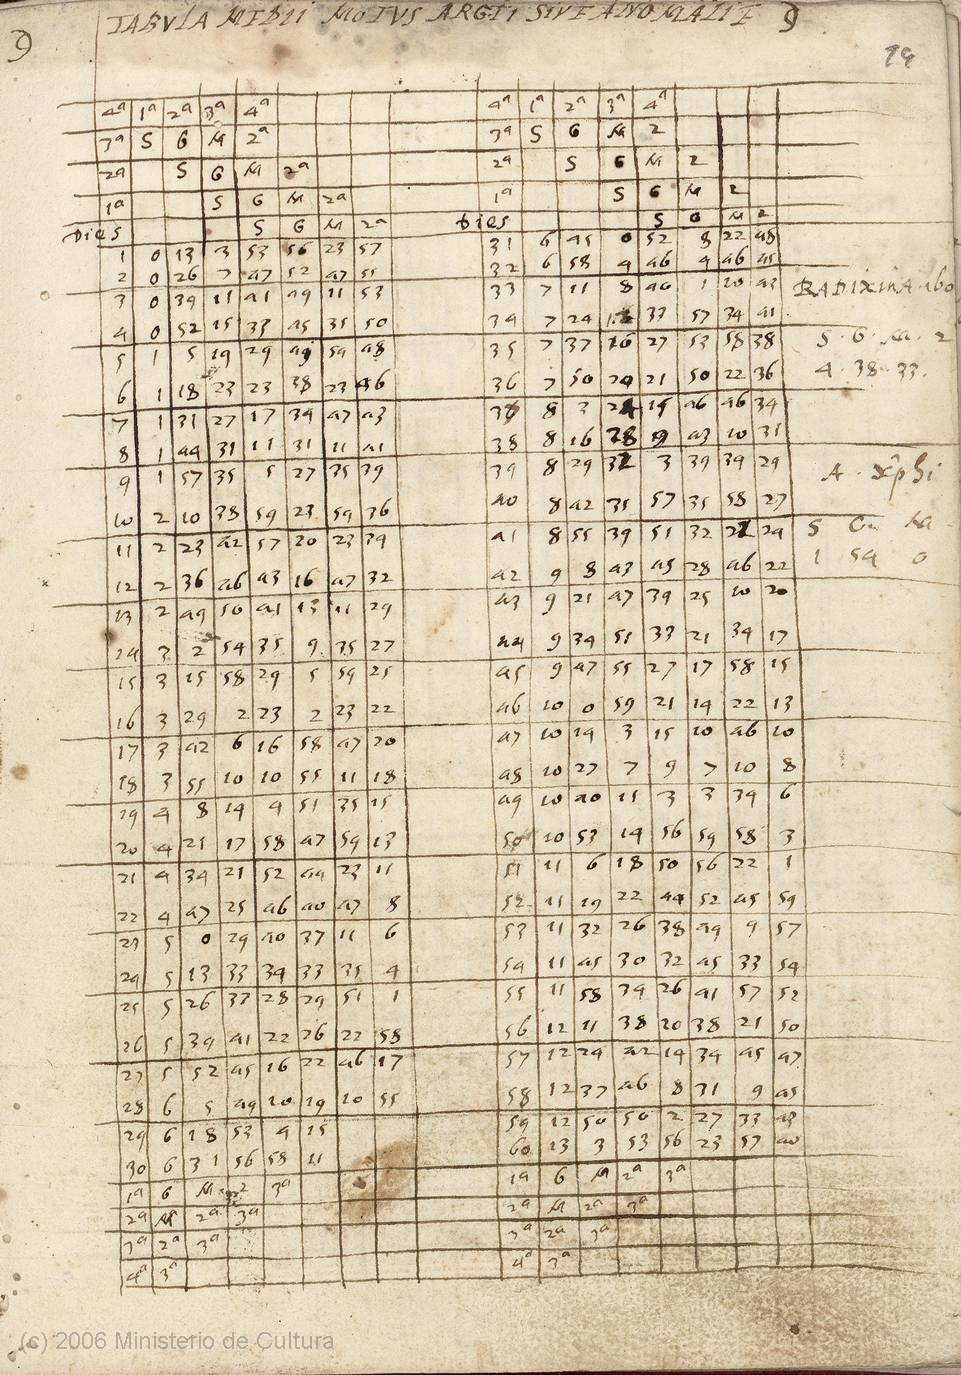 TABVLA MEDII MOTVS ARGTI SIVE ANOMALIE
4ª 1ª 2ª 3ª 4ª 4ª 1ª 2ª 3ª 4ª
3ª S G M 2ª 3ª S G M 2
2ª S G M 2ª 2ª S G M 2
1ª S G M 2ª 1ª S G M 2
Dies S G M 2ª Dies S G M 2
1 0 13 3 53 56 23 57 31 6 45 0 52 8 22 48
2 0 26 7 47 52 47 55 32 6 58 4 46 4 46 45
3 0 39 11 41 49 11 53 33 7 11 8 40 1 10 43
4 0 52 15 33 45 35 50 34 7 24 12 33 57 34 41
5 1 5 19 29 49 59 48 35 7 37 16 27 53 58 38
6 1 18 23 23 38 23 46 36 7 50 20 21 50 22 36
7 1 31 27 17 34 47 43 37 8 3 24 15 46 46 34
8 1 44 31 11 31 11 41 38 8 16 28 9 43 10 31
9 1 57 35 5 27 35 39 39 8 29 32 3 39 34 29
10 2 10 38 59 23 59 36 40 8 42 35 57 35 58 27
11 2 23 42 57 20 23 34 41 8 55 39 51 32 22 24
12 2 36 46 43 16 47 32 42 9 8 43 45 28 46 22
13 2 49 50 41 13 11 29 43 9 21 47 39 25 10 20
14 3 2 54 35 9 35 27 44 9 34 51 33 21 34 17
15 3 15 58 29 5 59 25 45 9 47 55 27 17 58 15
16 3 29 2 23 2 23 22 46 10 0 59 21 14 22 13
17 3 42 6 16 58 47 20 47 10 14 3 15 10 46 10
18 3 55 10 10 55 11 18 48 10 27 7 9 7 10 8
19 4 8 14 4 51 35 15 49 10 40 11 3 3 34 6
20 4 21 17 58 47 59 13 50 10 53 14 56 59 58 3
21 4 34 21 52 44 23 11 51 11 6 18 50 56 22 1
22 4 47 25 46 40 47 8 52 11 19 22 44 52 45 59
23 5 0 29 40 37 11 6 53 11 32 26 38 49 9 57
24 5 13 33 34 33 35 4 54 11 45 30 32 45 33 54
25 5 26 37 28 29 51 1 55 11 58 34 26 41 57 52
26 5 39 41 22 26 22 58 56 12 11 38 20 38 21 50
27 5 52 45 16 22 46 17 57 12 24 42 14 34 45 47
28 6 5 49 10 19 10 55 58 12 37 46 8 31 9 45
29 6 18 53 4 15 59 12 50 50 2 27 33 43
30 6 31 56 58 11 60 13 3 53 56 23 57 40
1ª G M 2 3ª 1ª G M 2ª 3ª
2ª M 2ª 3ª 2ª M 2ª 3ª
3ª 2ª 3ª 3ª 2ª 3ª
4ª 3ª 4ª 3ª
RADIX IN A
S G M 2
4 38 33
A xp̂hi
S G M
1 54 0
(c) 2006 Ministerio de Cultura